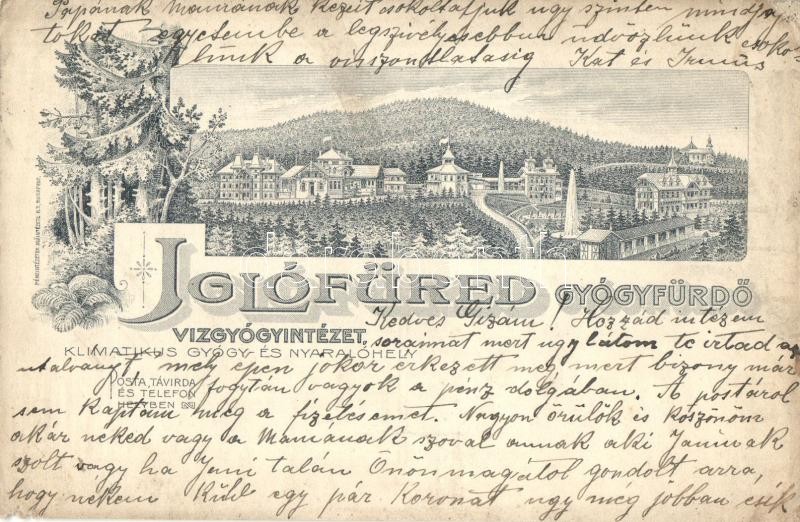 Papának Mamának kezeit csokoltatjuk ugy szintén mindja
tokat egyetembe a legszivélyesebben üdvözlünk csoko-
lünk a viszontlatasig Kat és Irmus
IGLÓFÜRED GYÓGYFÜRDŐ
VIZGYÓGYINTÉZET,
KLIMATIKUS GYÓGY- ÉS NYARALÓHELY
POSTA, TÁVIRDA
ÉS TELEFON
HELYBEN
Kedves Gizám! Hozzád intézem
soraimat mert ugy látom te irtad az
utalványt mely épen jokor érkezett meg, mert bizony már
fogytán vagyok a pénz dolgában. A postárol
sem kaptam meg a fizetésemet. Nagyon örülök és köszönöm
akár neked vagy a Mamának szoval annak aki Janinak
szolt vagy ha Jeni talán Önönmagátol gondolt arra,
hogy nékem küld egy pár Koronát ugy meg jobban esik